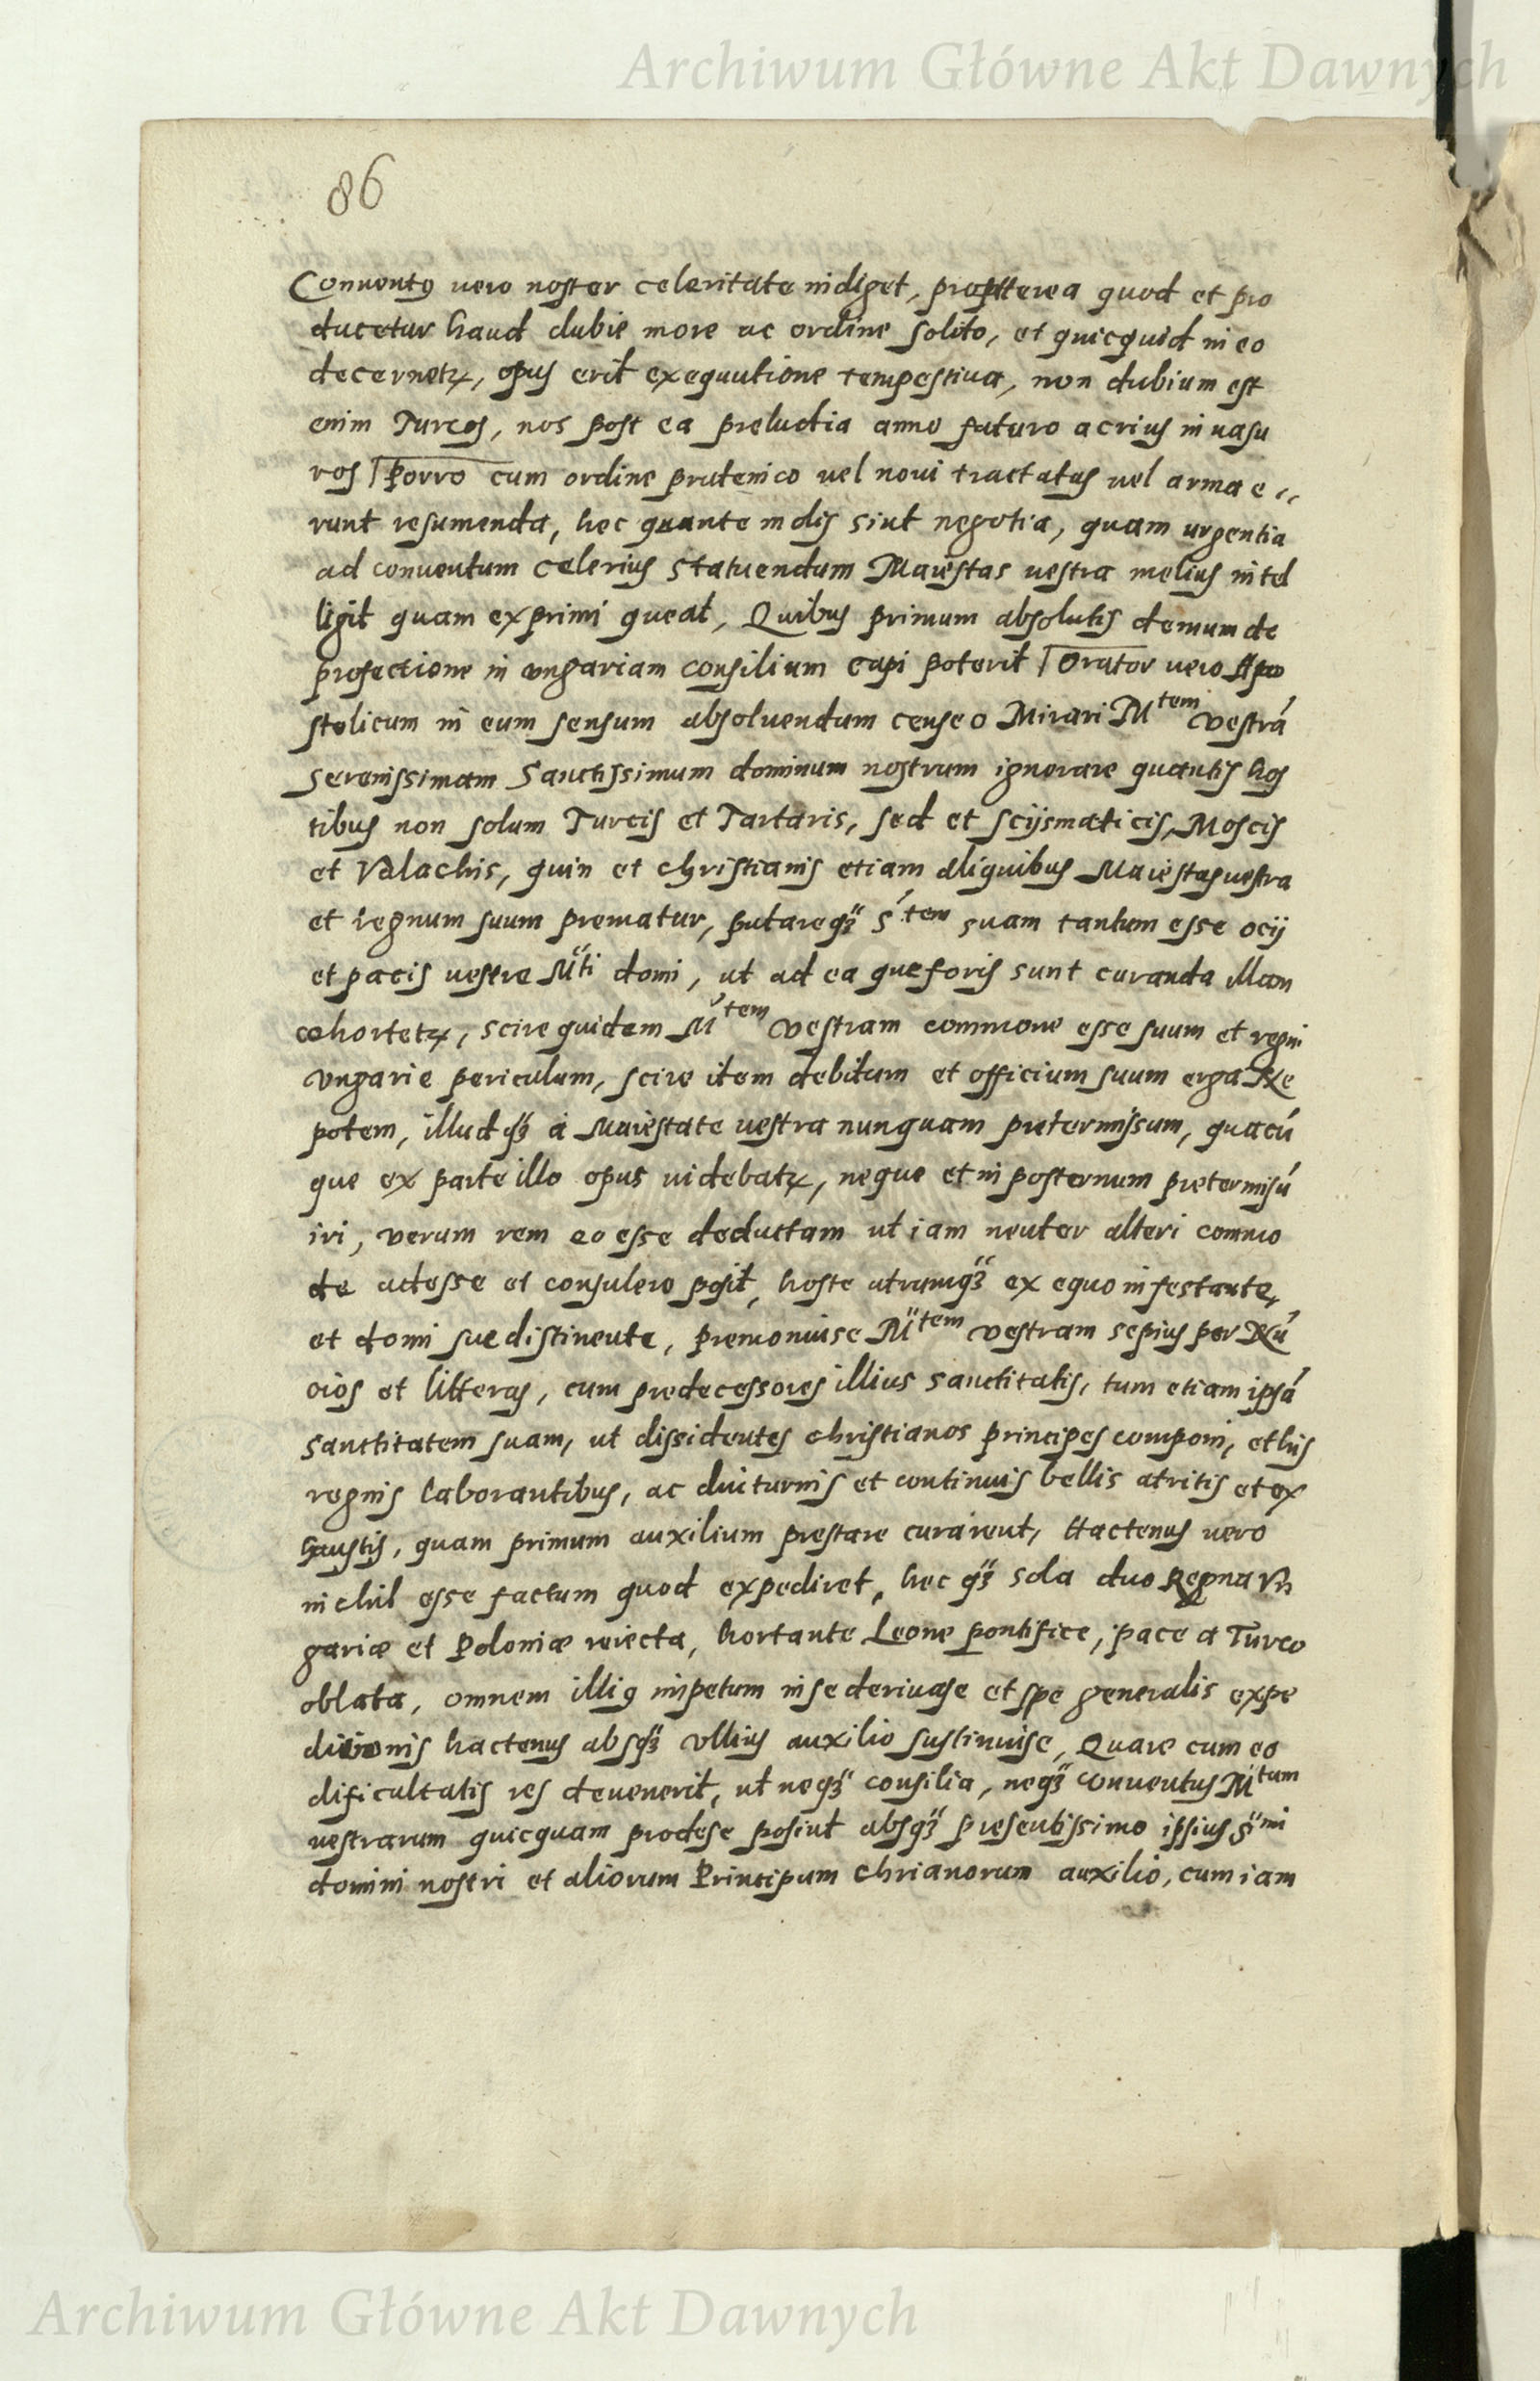 Archiwum Główne Akt Dawnych
86
Conuentꝯ vero noster celeritate indiget, propterea quod et pro
ducetur haud dubie more ac ordine solito, et quicquid in eo
decernetꝝ, opus erit exequutione tempestiua, non dubium est
enim Turcos, nos post ea preludia anno futuro acrius inuasu
ros Porro cum ordine prutenico vel noui tractatus vel arma e
runt resumenda, hec quante molis sint negotia, quam urgentia
ad conuentum celerius statuendum Maiestas vestra melius intel
ligit quam exprimi queat, Quibus primum absolutis demum de
profectione in vngariam consilium capi poterit Orator vero Apo
stolicum in eum sensum absoluendum censeo Mirari Mtem vestrā
serenissimam Sanctissimum dominum nostrum ignorare quantis hos
tibus non solum Turcis et Tartaris, sed et scijsmaticis, Moscis
et Valachis, quin et christianis etiam aliquibus Maiestas vestra
et regnum suum prematur, putareqꝫ Stem suam tantum esse ocij
et pacis vestre Mti domi, ut ad ea que foris sunt curanda illam
cohortetꝝ, scire quidem Mtem vestram commone esse suum et regni
vngarie periculum, scire item debitum et officium suum erga Ne
potem, illudqꝫ a Maiestate vestra nunquam pretermissum, quacū
que ex parte illo opus videbatꝝ, neque et in posternum pretermisū
iri, verum rem eo esse deductam ut iam neuter alteri commo
de adesse et consulere posit, hoste utrumqꝫ ex equo infestante,
et domi sue distinente, premonuise Mtem vestram sepius per Nū
cios et litteras, cum predecessores illius sanctitatis, tum etiam ipsā
sanctitatem suam, ut dissidentes christianos principes componi, et his
regnis laborantibus, ac diuturnis et continuis bellis atritis et ex
haustis, quam primum auxilium prestare curarent, Hactenus vero
nichil esse factum quod expediret, hecqꝫ sola duo Regna Vn
gariæ et Poloniæ reiecta, hortante Leone pontifice, pace a Turco
oblata, omnem illiꝯ impetum in se deriuase et spe generalis expe
ditionis hactenus absqꝫ vllius auxilio sustinuise, Quare cum eo
dificultatis res deuenerit, ut neqꝫ consilia, neqꝫ conuentus Mtum
vestrarum quicquam prodese posint absqꝫ presentissimo ipsius Smi
domini nostri et aliorum Principum chrianorum auxilio, cum iam
Archiwum Główne Akt Dawnych